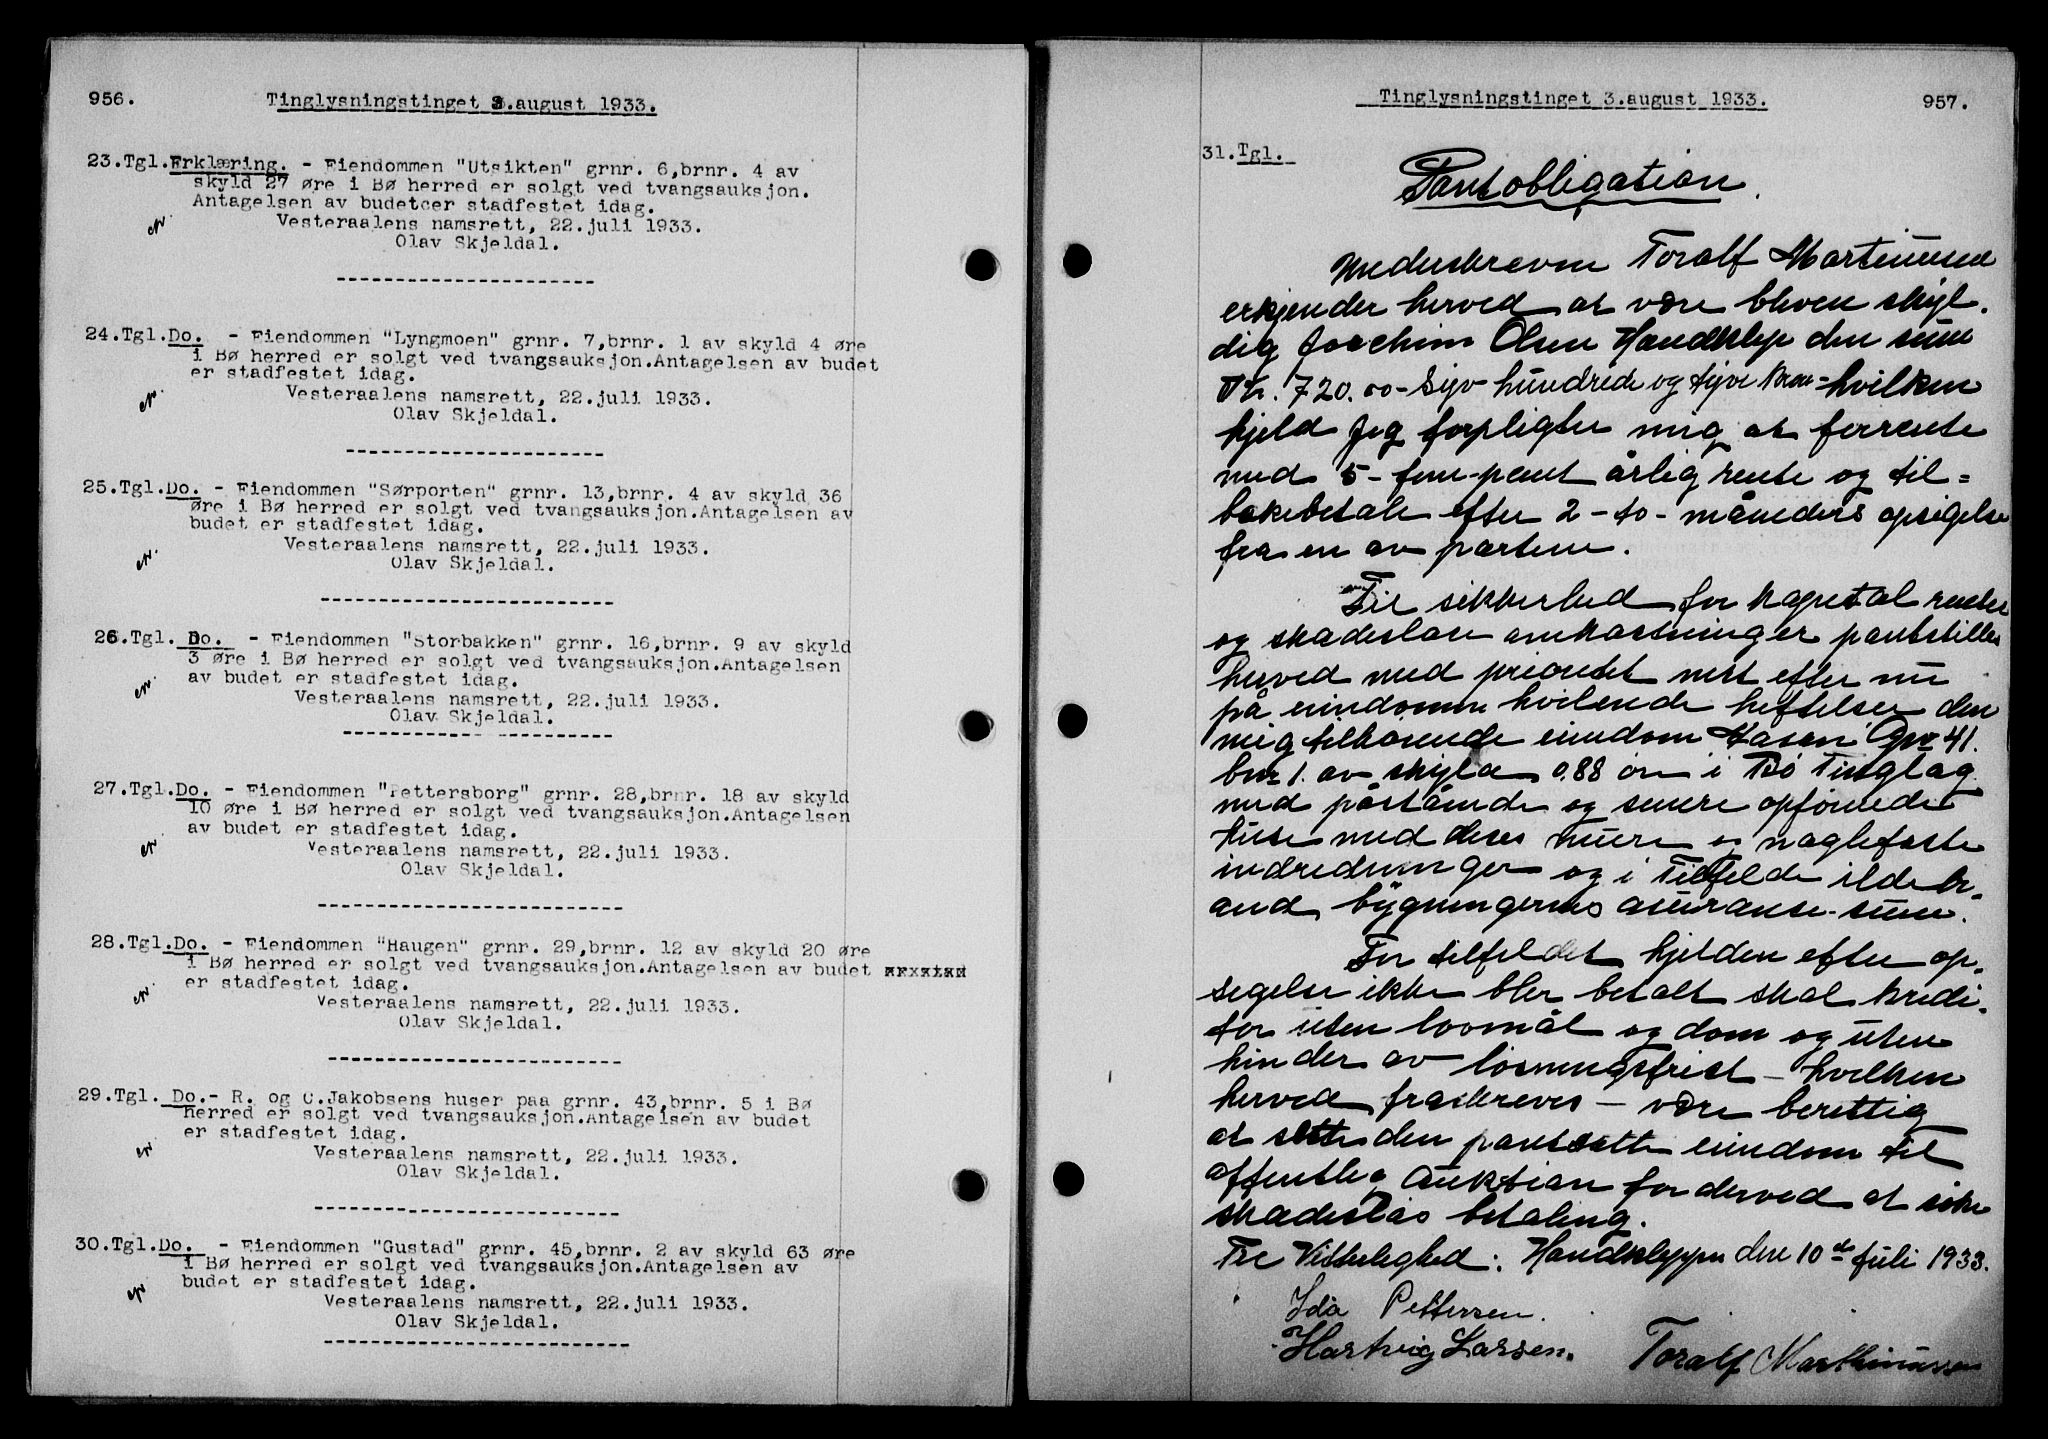 956.
Tinglysningstinget 3.august 1933.
23.Tgl.Erklæring. - Eiendommen "Utsikten" grnr. 6,brnr. 4 av
skyld 27 øre i Bø herred er solgt ved tvangsauksjon.
Antagelsen av budetcer stadfestet idag.
Vesteraalens namsrett, 22.juli 1933.
Olav Skjeldal.
24.Tgl.Do. - Eiendommen "Lyngmoen" grnr. 7,brnr. 1 av skyld 4 øre
i Bø herred er solgt ved tvangsauksjon.Antagelsen av budet
er stadfestet idag.
Vesteraalens namsrett, 22.juli 1933.
Olav Skjeldal.
25.Tgl.Do. - Eiendommen "Sørporten" grnr. 13,brnr. 4 av skyld 36
øre i Bø herred er solgt ved tvangsauksjon.Antagelsen av
budet er stadfestet idag.
Vesteraalens namsrett, 22.juli 1933.
Olav Skjeldal.
26.Tgl. Do. - Eiendommen "Storbakken" grnr. 16,brnr. 9 av skyld
3 øre i Bø herred er solgt ved tvangsauksjon.Antagelsen
av budet er stadfestet idag.
Vesteraalens namsrett, 22.juli 1933.
Olav Skjeldal.
27.Tgl.Do. - Eiendommen "Pettersborg" grnr. 28,brnr. 18 av skyld
10 øre i Bø herred er solgt ved tvangsauksjon.Antagelsen
av budet er stadfestet idag.
Vesteraalens namsrett, 22.juli 1933.
Olav Skjeldal.
28.Tgl.Do. - Eiendommen "Haugen" grnr. 29,brnr. 12 av skyld 20 øre
i Bø herred er solgt ved tvangsauksjon.Antagelsen av budet
er stadfestet idag.
Vesteraalens namsrett, 22.juli 1933.
Olav Skjeldal.
29.Tgl. Do.- R. og C.Jakobsens huser paa grnr. 43,brnr. 5 i Bø
herred er solgt ved tvangsauksjon.Antagelsen av budet
er stadfestet idag.
Vesteraalens namsrett, 22.juli 1933.
Olav Skjeldal.
30.Tgl.Do. - Eiendommen "Gustad" grnr. 45,brnr. 2 av skyld 63 øre
i Bø herred er solgt ved tvangsauksjon.Antagelsen av
budet er stadfestet idag.
Vesteraalens namsrett, 22.juli 1933.
Olav Skjeldal.
Tinglysningstinget 3.august 1933.
957.
31.Tgl.
Pantobligation.
Underskrevne Toralf Martinusen
erkjender herved at være bleven skyl-
dig Joachim Olsen Handklep den sum
Kr. 720.00- Syv hundrede og tyve kron= hvilken
gjeld jeg forpligter mig at forrente
med 5 - fem- pcent årlig rente og til=
bakebetale efter 2 - to - måneders opsigelse
fra en av partene.
Til sikkerhed for kapital renter
og skadesløse omkostninger pantstilles
herved med prioritet nest efter nu
på eiendommen hvilende heftelser den
mig tilhørende eiendom Åsen Gnr 41.
bnr 1. av skyld 0.88 øre i Bø Tinglag
med påstående og senere opførende
huse med deres mure og naglefaste
indredninger og i Tilfelde ildebr-
and bygningernes asuranse-sum.
For tilfeldet gjelden efter op-
sigelse ikke bler betalt skal kredi-
tor uten lovmål og dom og uten
hinder av løsningsfrist - hvilken
herved fraskreves - være berettig
at sette den pantsatte eiendom til
offentlig auktion for derved at søke
skadesløs betaling.
Til Vitterlighed: Handkleppen den 10de juli 1933.
Ida Pettersen.
Hartvig Larsen.
Toralf Marthinussen